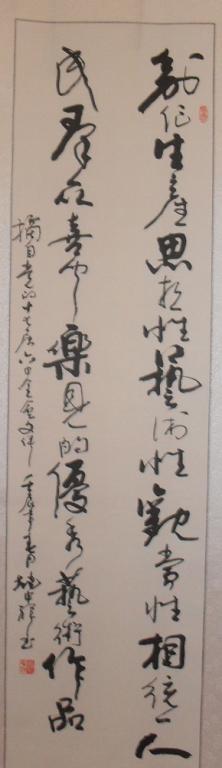 創作生產思想性藝術性觀賞性相統一人
民群众喜闻樂見的優秀藝術作品
摘自党的十七届六中全会文件 壬辰年春月 书